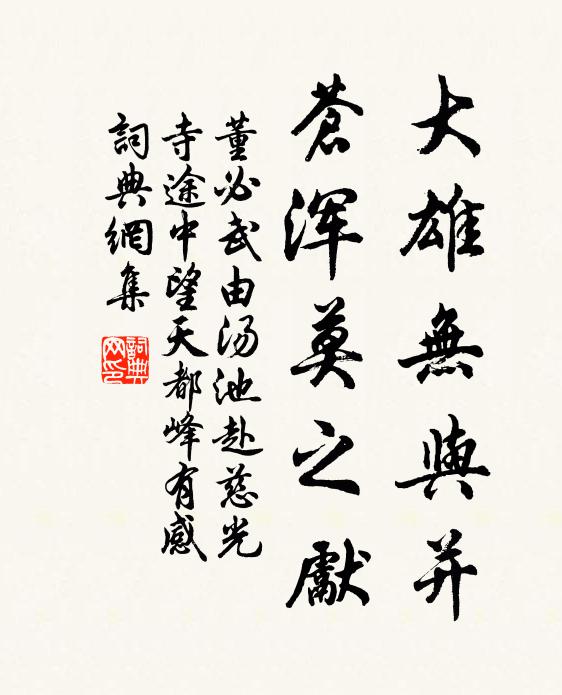 大雄無與并
蒼渾莫之獻
董必武由汤池赴慈光
寺途中望天都峰有感
詞典網集
詞典网印